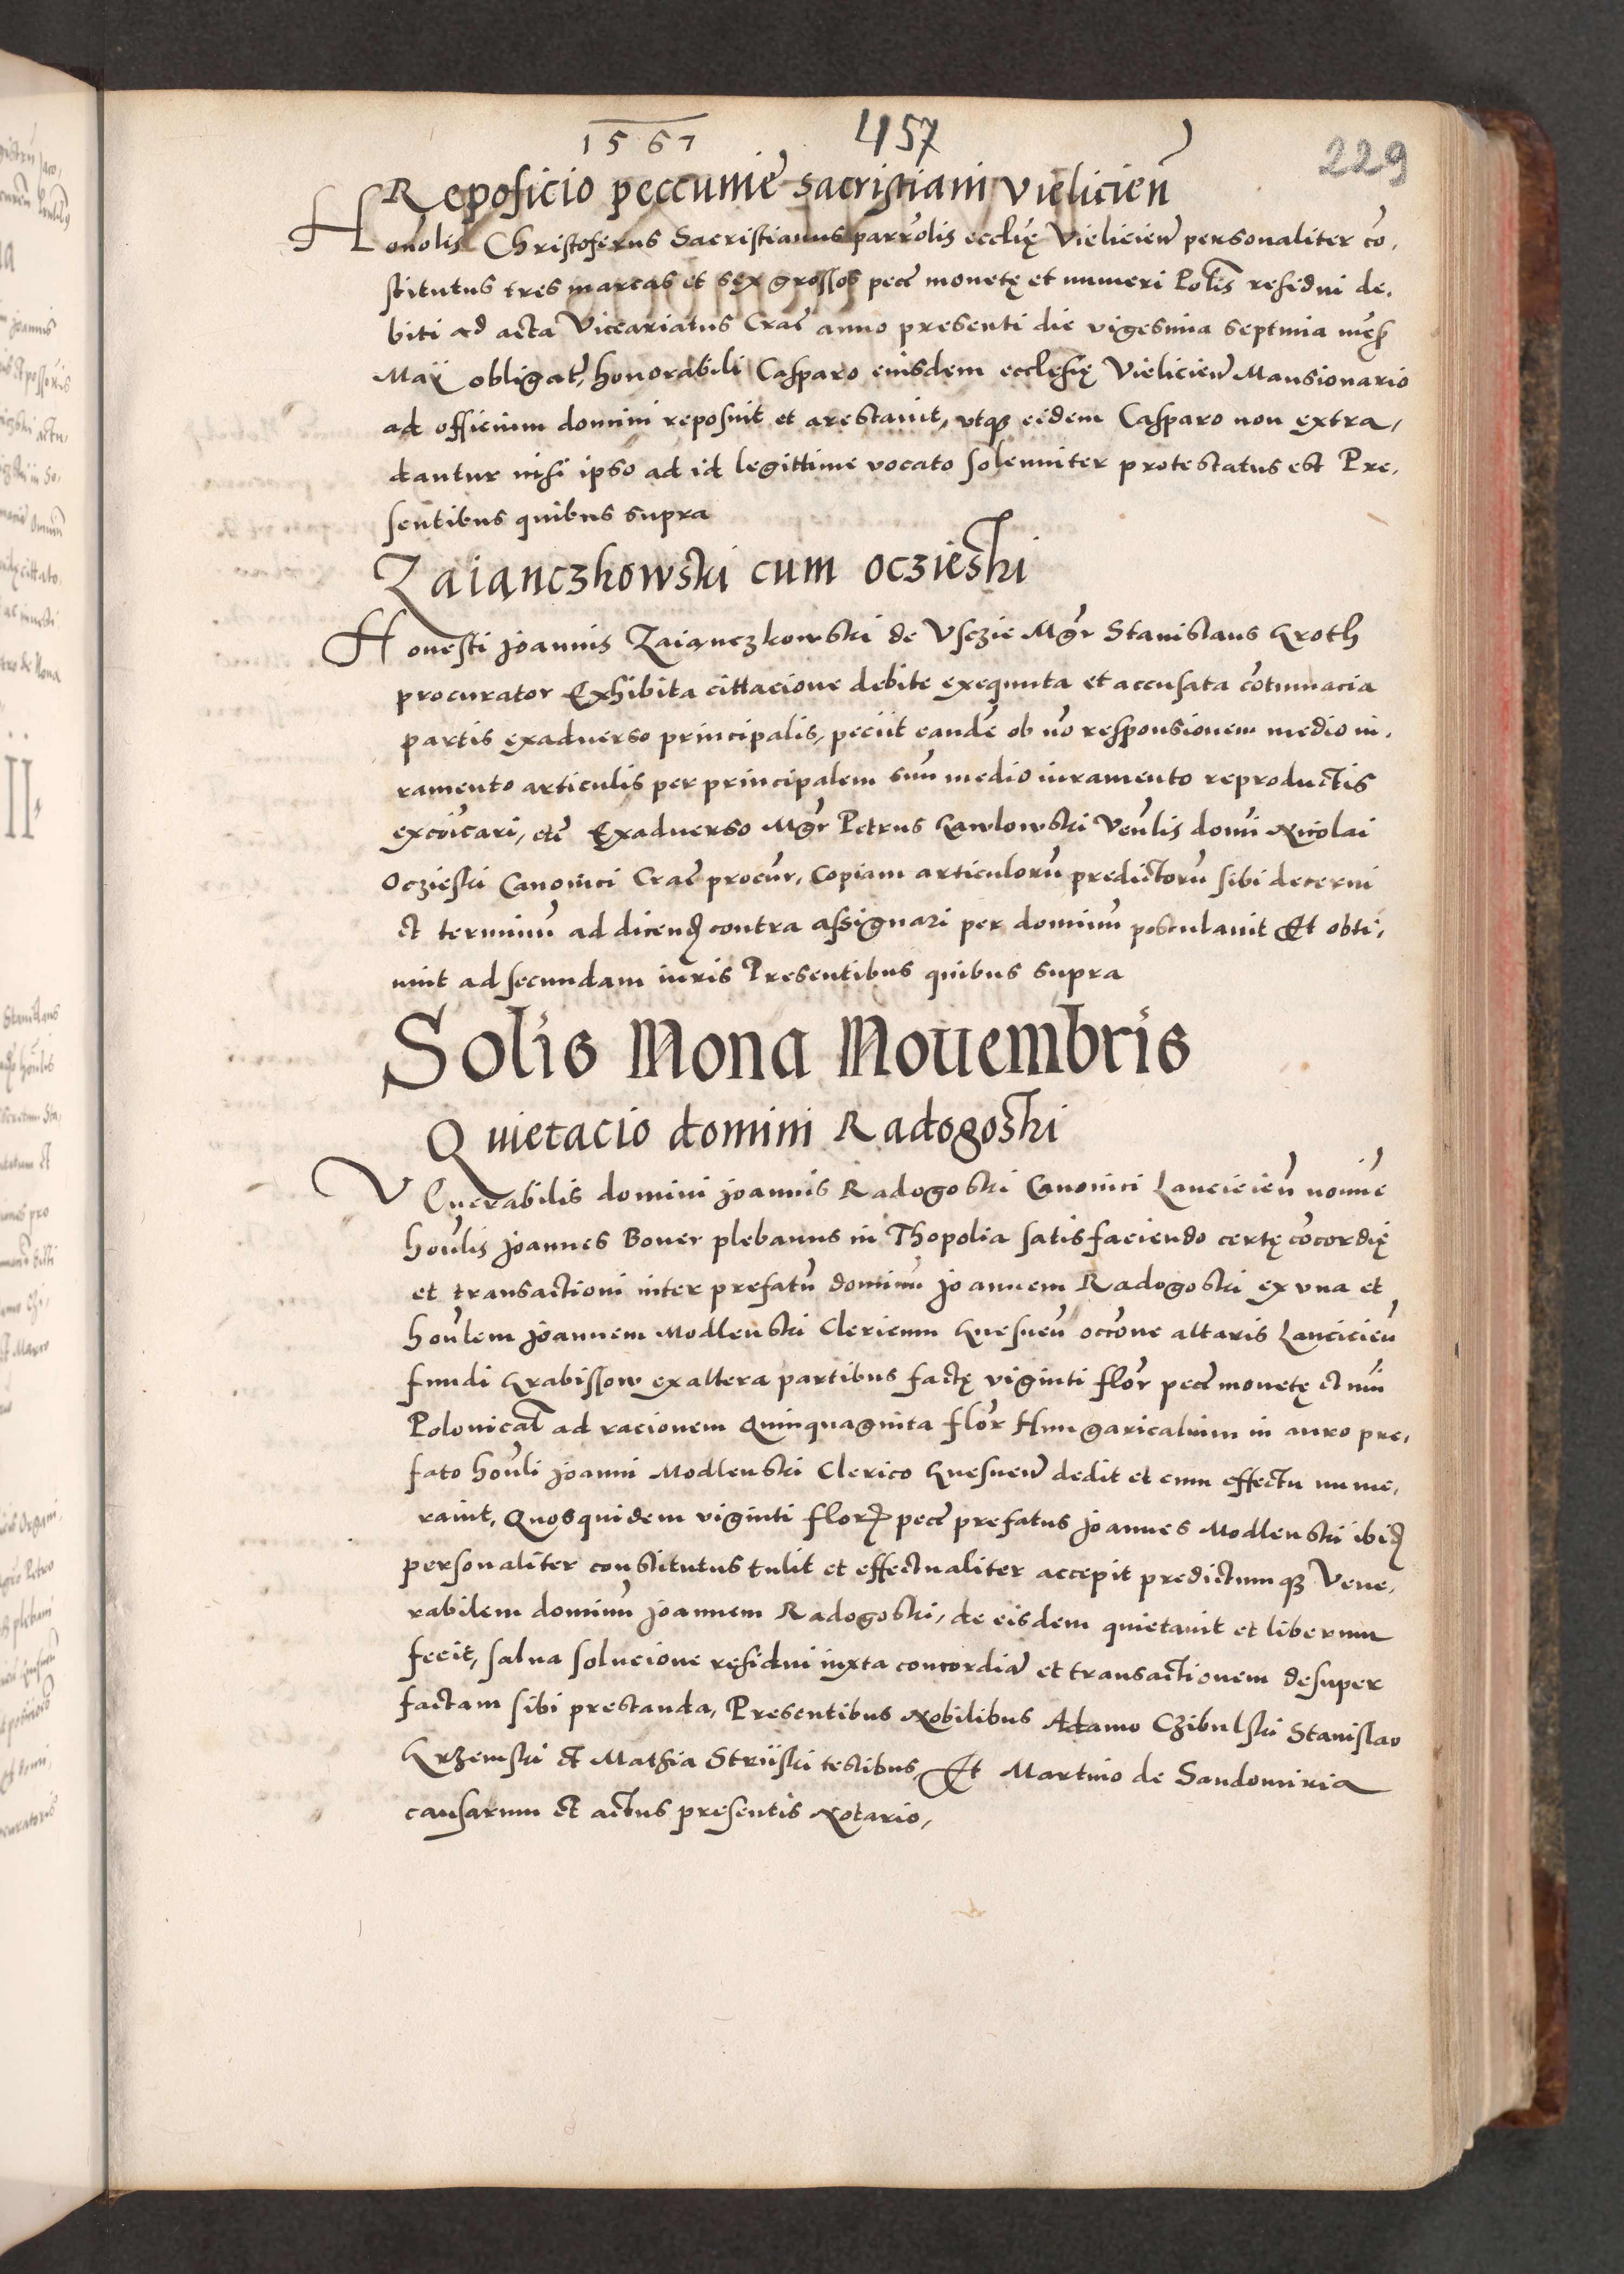 1567 457 229
Reposicio peccunie̅ sacristiani Vielicien̅
Honolis Christoferus Sacristianus parro̅lis eccl̅ię Vielicien̅ personaliter co̅,
stitutus tres marcas et sex grossos pecc̅ monetę et numeri Pol̅is residui de,
biti ad acta Viccariatus Crac̅ anno presenti die vigesima septima mens̅
Maÿ obligat̅, honorabili Casparo eiusdem ecclesię Vielicien̅ Mansionario
ad officium domini reposuit et arestauit, vtqʒ eidem Casparo non extra,
dantur nisi ipso ad id legittime vocato solenniter protestatus est Pre,
sentibus quibus supra
Zaiąnczkowski cum oczieski
Honesti Joannis Zaiąnczkowski de Vsczie Mgr̅ Stanislaus Groth
procurator Exhibita cittacione debite exequuta et accusata co̅tumacia
partis exaduerso principalis, peciit eande̅ ob no̅ responsionem medio iu,
ramento articulis per principalem suu̅ medio iuramento reproductis
exco̅icari, etc̅ Exaduerso Mgr̅ Petrus Gawlowski Ven̅lis domi̅ Nicolai
Oczieski Canonici Crac̅ procur̅, Copiam articuloru̅ predictoru̅ sibi decerni
et terminu̅ ad dicend̅ contra assignari per dominu̅ postulauit Et obti,
nuit ad secundam iuris Presentibus quibus supra
Solis Nona Nouembris
Quietacio domini Radogoski
VEnerabilis domini Joannis Radogoski Canonici Lancicien̅ nomi̅e
hon̅lis Joannes Boner plebanus in Thopolia satisfaciendo certę co̅cordię
et transactioni inter prefatu̅ dominu̅ Joannem Radogoski ex vna et
hon̅lem Joannem Modlenski Clericum Gnesnen̅ occ̅one altaris Lancicien̅
fundi Grabissow ex altera partibus factę viginti flor̅ pecc̅ monetę et nu̅i
Polonical̅ ad racionem Quinquaginta flor̅ Hungaricalium in auro pre,
fato hon̅li Joanni Modlenski Clerico Gnesnen̅ dedit et cum effectu nume,
rauit, Quosquidem viginti flor̅ pecc̅ prefatus Joannes Modlenski ibid̅
personaliter constitutus tulit et effectualiter accepit predictumqʒ Vene,
rabilem dominu̅ Joannem Radogoski, de eisdem quietauit et liberum
fecit, salua solucione residui iuxta concordia̅ et transactionem desuper
factam sibi prestanda, Presentibus Nobilibus Adamo Czibulski Stanislao
Grzemski et Mathia Striiski testibus, Et Martino de Sandomiria
causarum et actus presentis Notario,